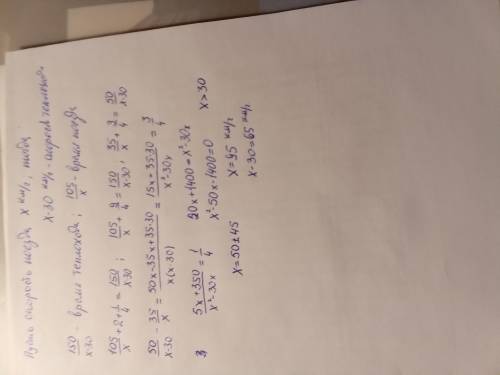 Пусть скорость поезда x км/ч, тогда
x-30 км/ч - скорость теплохода.
150/(x-30) - время теплохода ; 105/x - время поезда
105/x + 2 + 1/4 = 150/(x-30) ; 105/x + 9/4 = 150/(x-30) ; 35/x + 3/4 = 50/(x-30)
50/(x-30) - 35/x = (50x-35x+35·30)/(x(x-30)) = (15x+35·30)/(x²-30x) = 3/4
(5x+350)/(x²-30x) = 1/4 20x+1400=x²-30x
x²-50x-1400=0 x>30
x=50±45 x=95 км/ч
x-30=65 км/ч